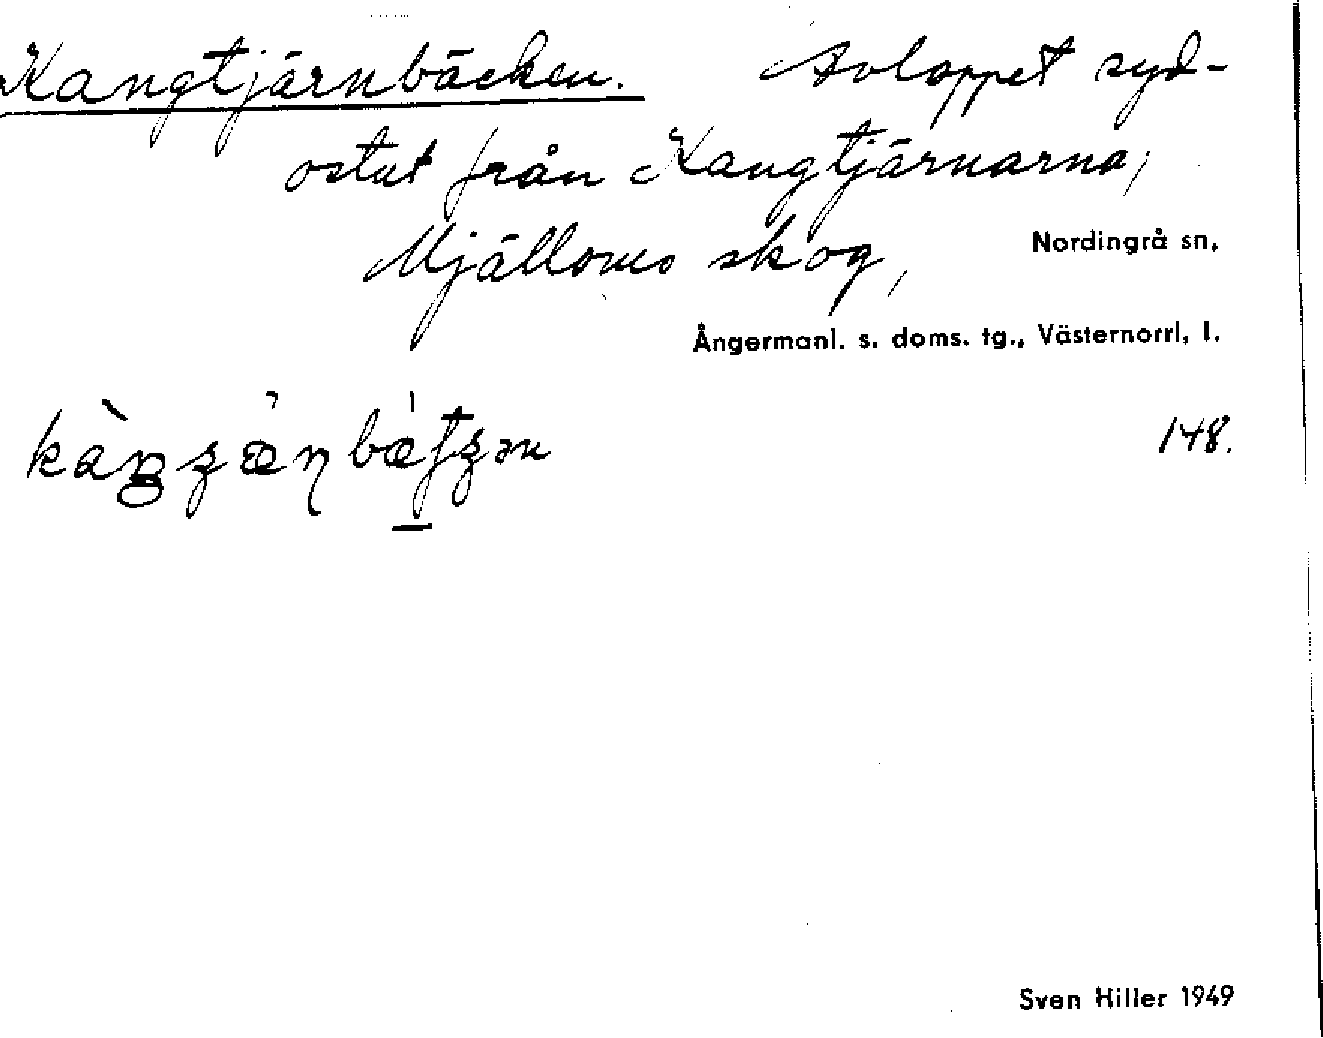 Kangtjärnbäcken. Avloppet syd-
ostut från Kangtjärnarna,
Mjälloms skog, Nordingrå sn,
Ångermanl. s. doms. tg., Västernorrl, l.
148.
Sven Hiller 1949